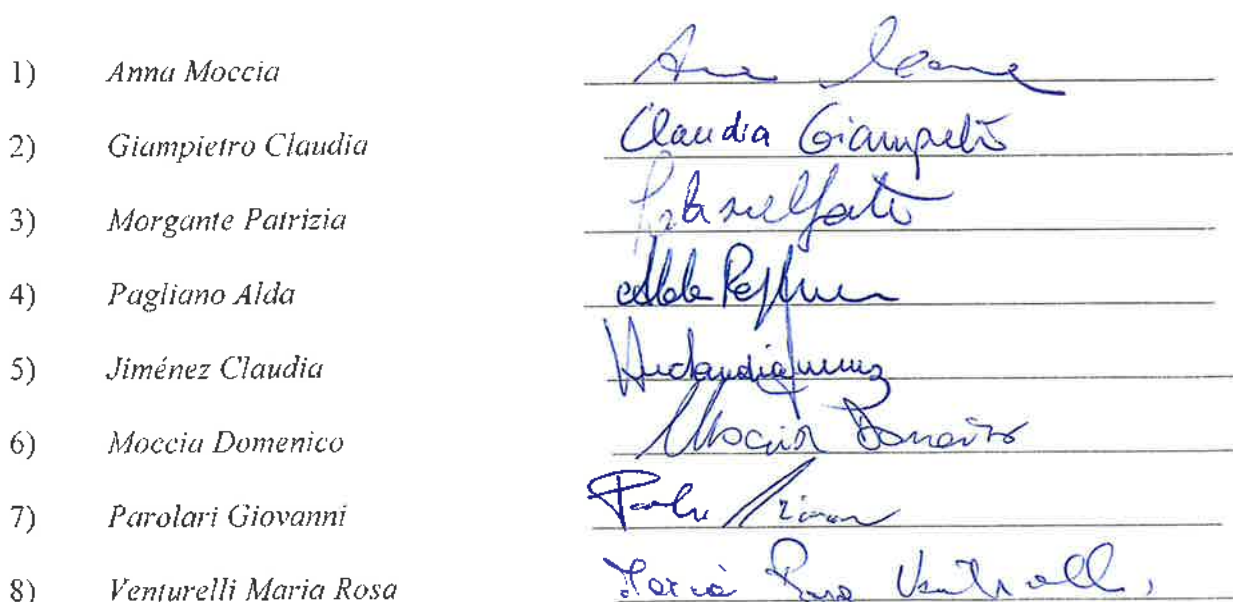 1) Anna Moccia
2) Giampietro Claudia Claudia Giampietro
3) Morgante Patrizia
4) Pagliano Alda Alda
5) Jiménez Claudia
6) Moccia Domenico Moccia Domenico
7) Parolari Giovanni
8) Venturelli Maria Rosa Maria Rosa Venturelli